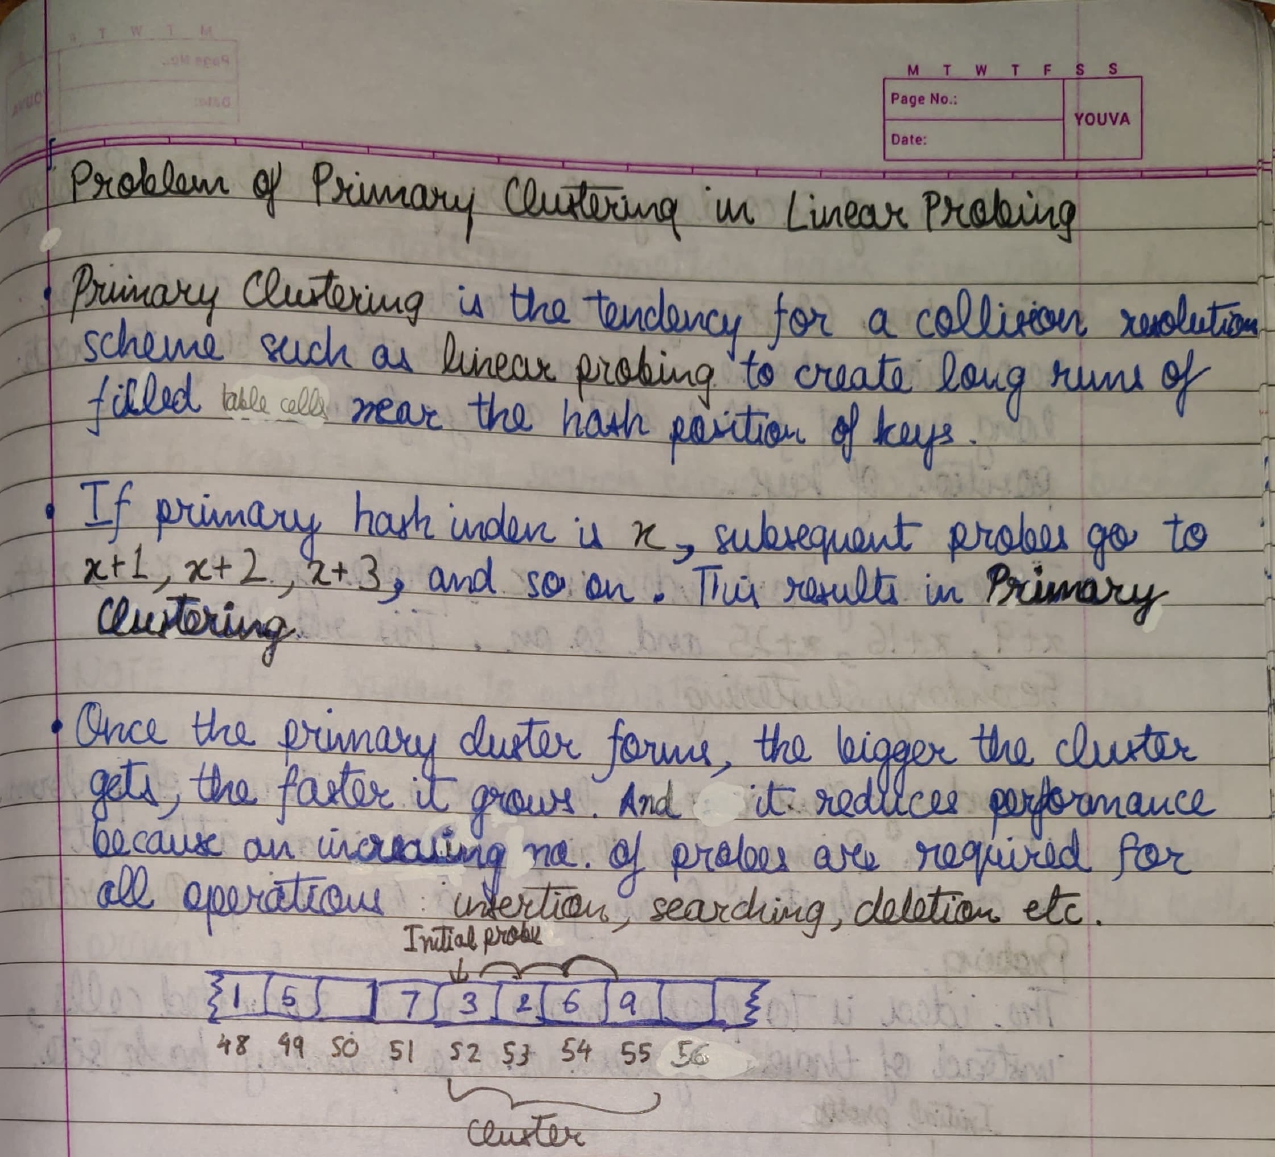 M T W T F S S
Page No.:
YOUVA
Date:
Problem of Primary Clustering in Linear Probing
• Primary Clustering is the tendency for a collision resolution
scheme such as linear probing to create long runs of
filled table cells near the hash position of keys.
• If primary hash index is x, subsequent probes go to
x+1, x+2, x+3, and so on. This results in Primary
Clustering.
• Once the primary cluster forms, the bigger the cluster
gets, the faster it grows. And it reduces performance
because an increasing no. of probes are required for
all operations : insertion, searching, deletion etc.
Initial probe
1 5 7 3 2 6 9
48 49 50 51 52 53 54 55 56
Cluster